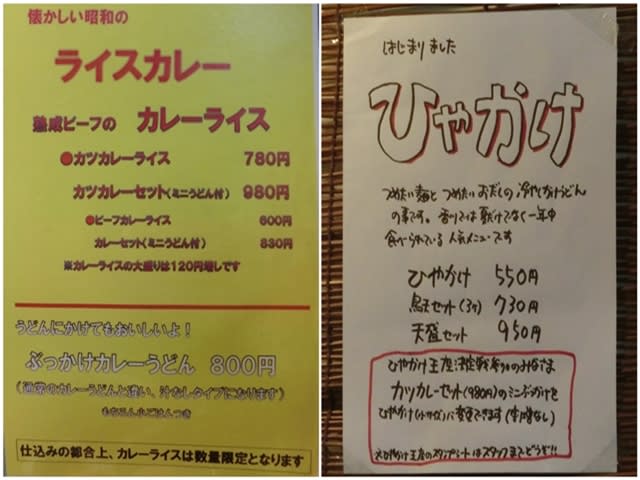 懐かしい昭和の
ライスカレー
熟成ビーフの カレーライス
●カツカレーライス 780円
カツカレーセット(ミニうどん付) 980円
●ビーフカレーライス 600円
カレーセット(ミニうどん付) 830円
※カレーライスの大盛りは120円増しです
うどんにかけてもおいしいよ!
ぶっかけカレーうどん 800円
(通常のカレーうどんと違い、汁なしタイプになります)
もちろん小ごはんつき
仕込みの都合上、カレーライスは数量限定となります
はじまりました
ひやかけ
つめたい麺とつめたいおだしの冷やしかけうどん
の事です。香川では夏だけでなく一年中
食べられている人気メニューです
ひやかけ 550円
鳥天セット(3ケ) 730円
天盛セット 950円
ひやかけ王座決定戦参加のみなさま
カツカレーセット(980円)のミニぶっかけを
ひやかけ(小サイズ)に変更できます(増なし)
ひやかけ王座のスタンプシートはスタッフまでどうぞ!!